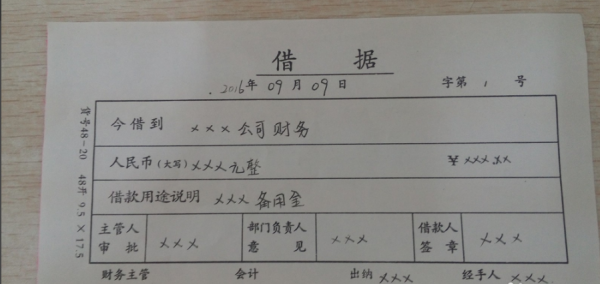 借 据
2016年 09月 09日 字第 1 号
今借到 ×××公司财务
人民币(大写) ×××元整 ¥ ×××.××
借款用途说明 ×××备用金
主管人审批 ××× 部门负责人意见 ××× 借款人签章 ×××
财务主管 会计 出纳 ××× 经手人 ×××
货号48-20 48开 9.5×17.5